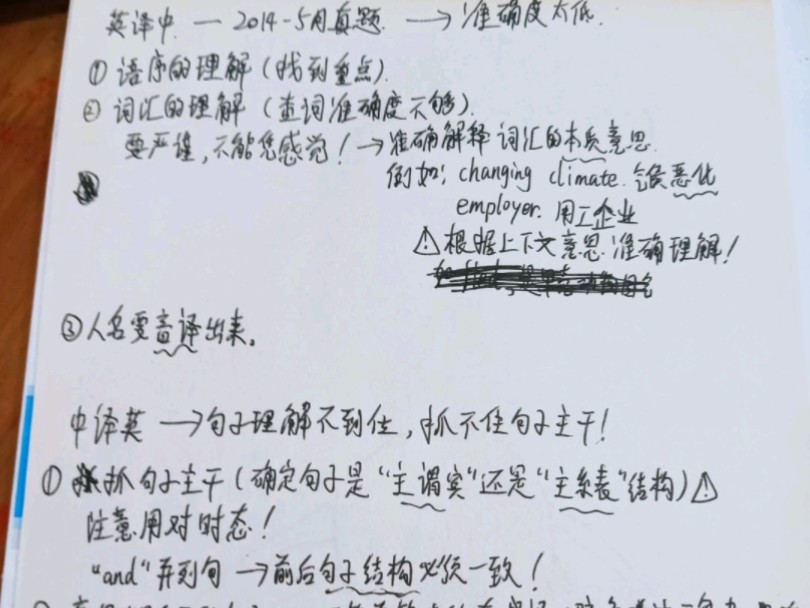 英译中 — 2014-5月真题 → 准确度太低.
① 语序的理解（找到重点）.
② 词汇的理解（查词准确度不够）.
要严谨，不能凭感觉！→ 准确解释词汇的本质意思.
例如：changing climate. 气候恶化
employer. 用工企业
⚠根据上下文意思准确理解！
③人名要音译出来。
中译英 →句子理解不到位，抓不住句子主干！
① 抓句子主干（确定句子是“主谓宾”还是“主系表”结构）⚠
注意用对时态！
“and”并列句 →前后句子结构必须一致！